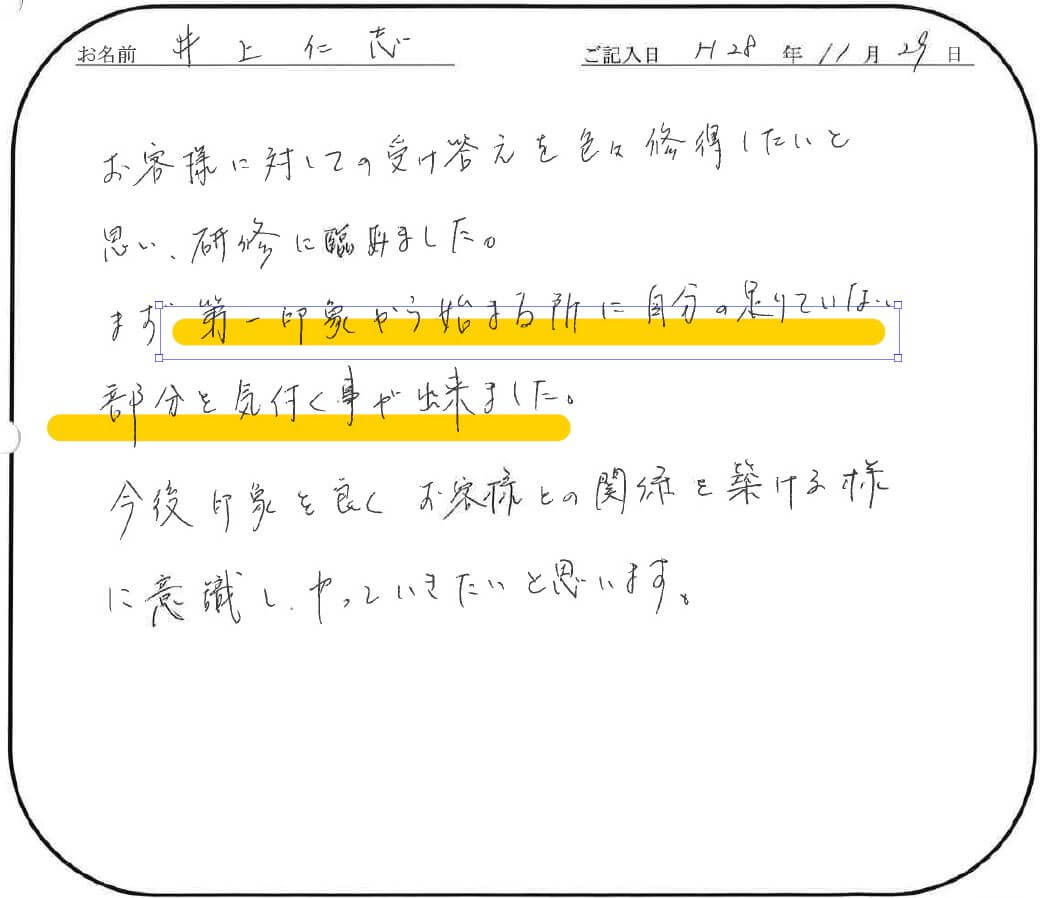 お名前 井上仁志 ご記入日 H28年11月29日
お客様に対しての受け答えを色々修得したいと
思い、研修に臨みました。
まず第一印象から始まる所に自分の足りていない
部分と気付く事が出来ました。
今後印象を良くお客様との関係を築ける様
に意識し、やっていきたいと思います。